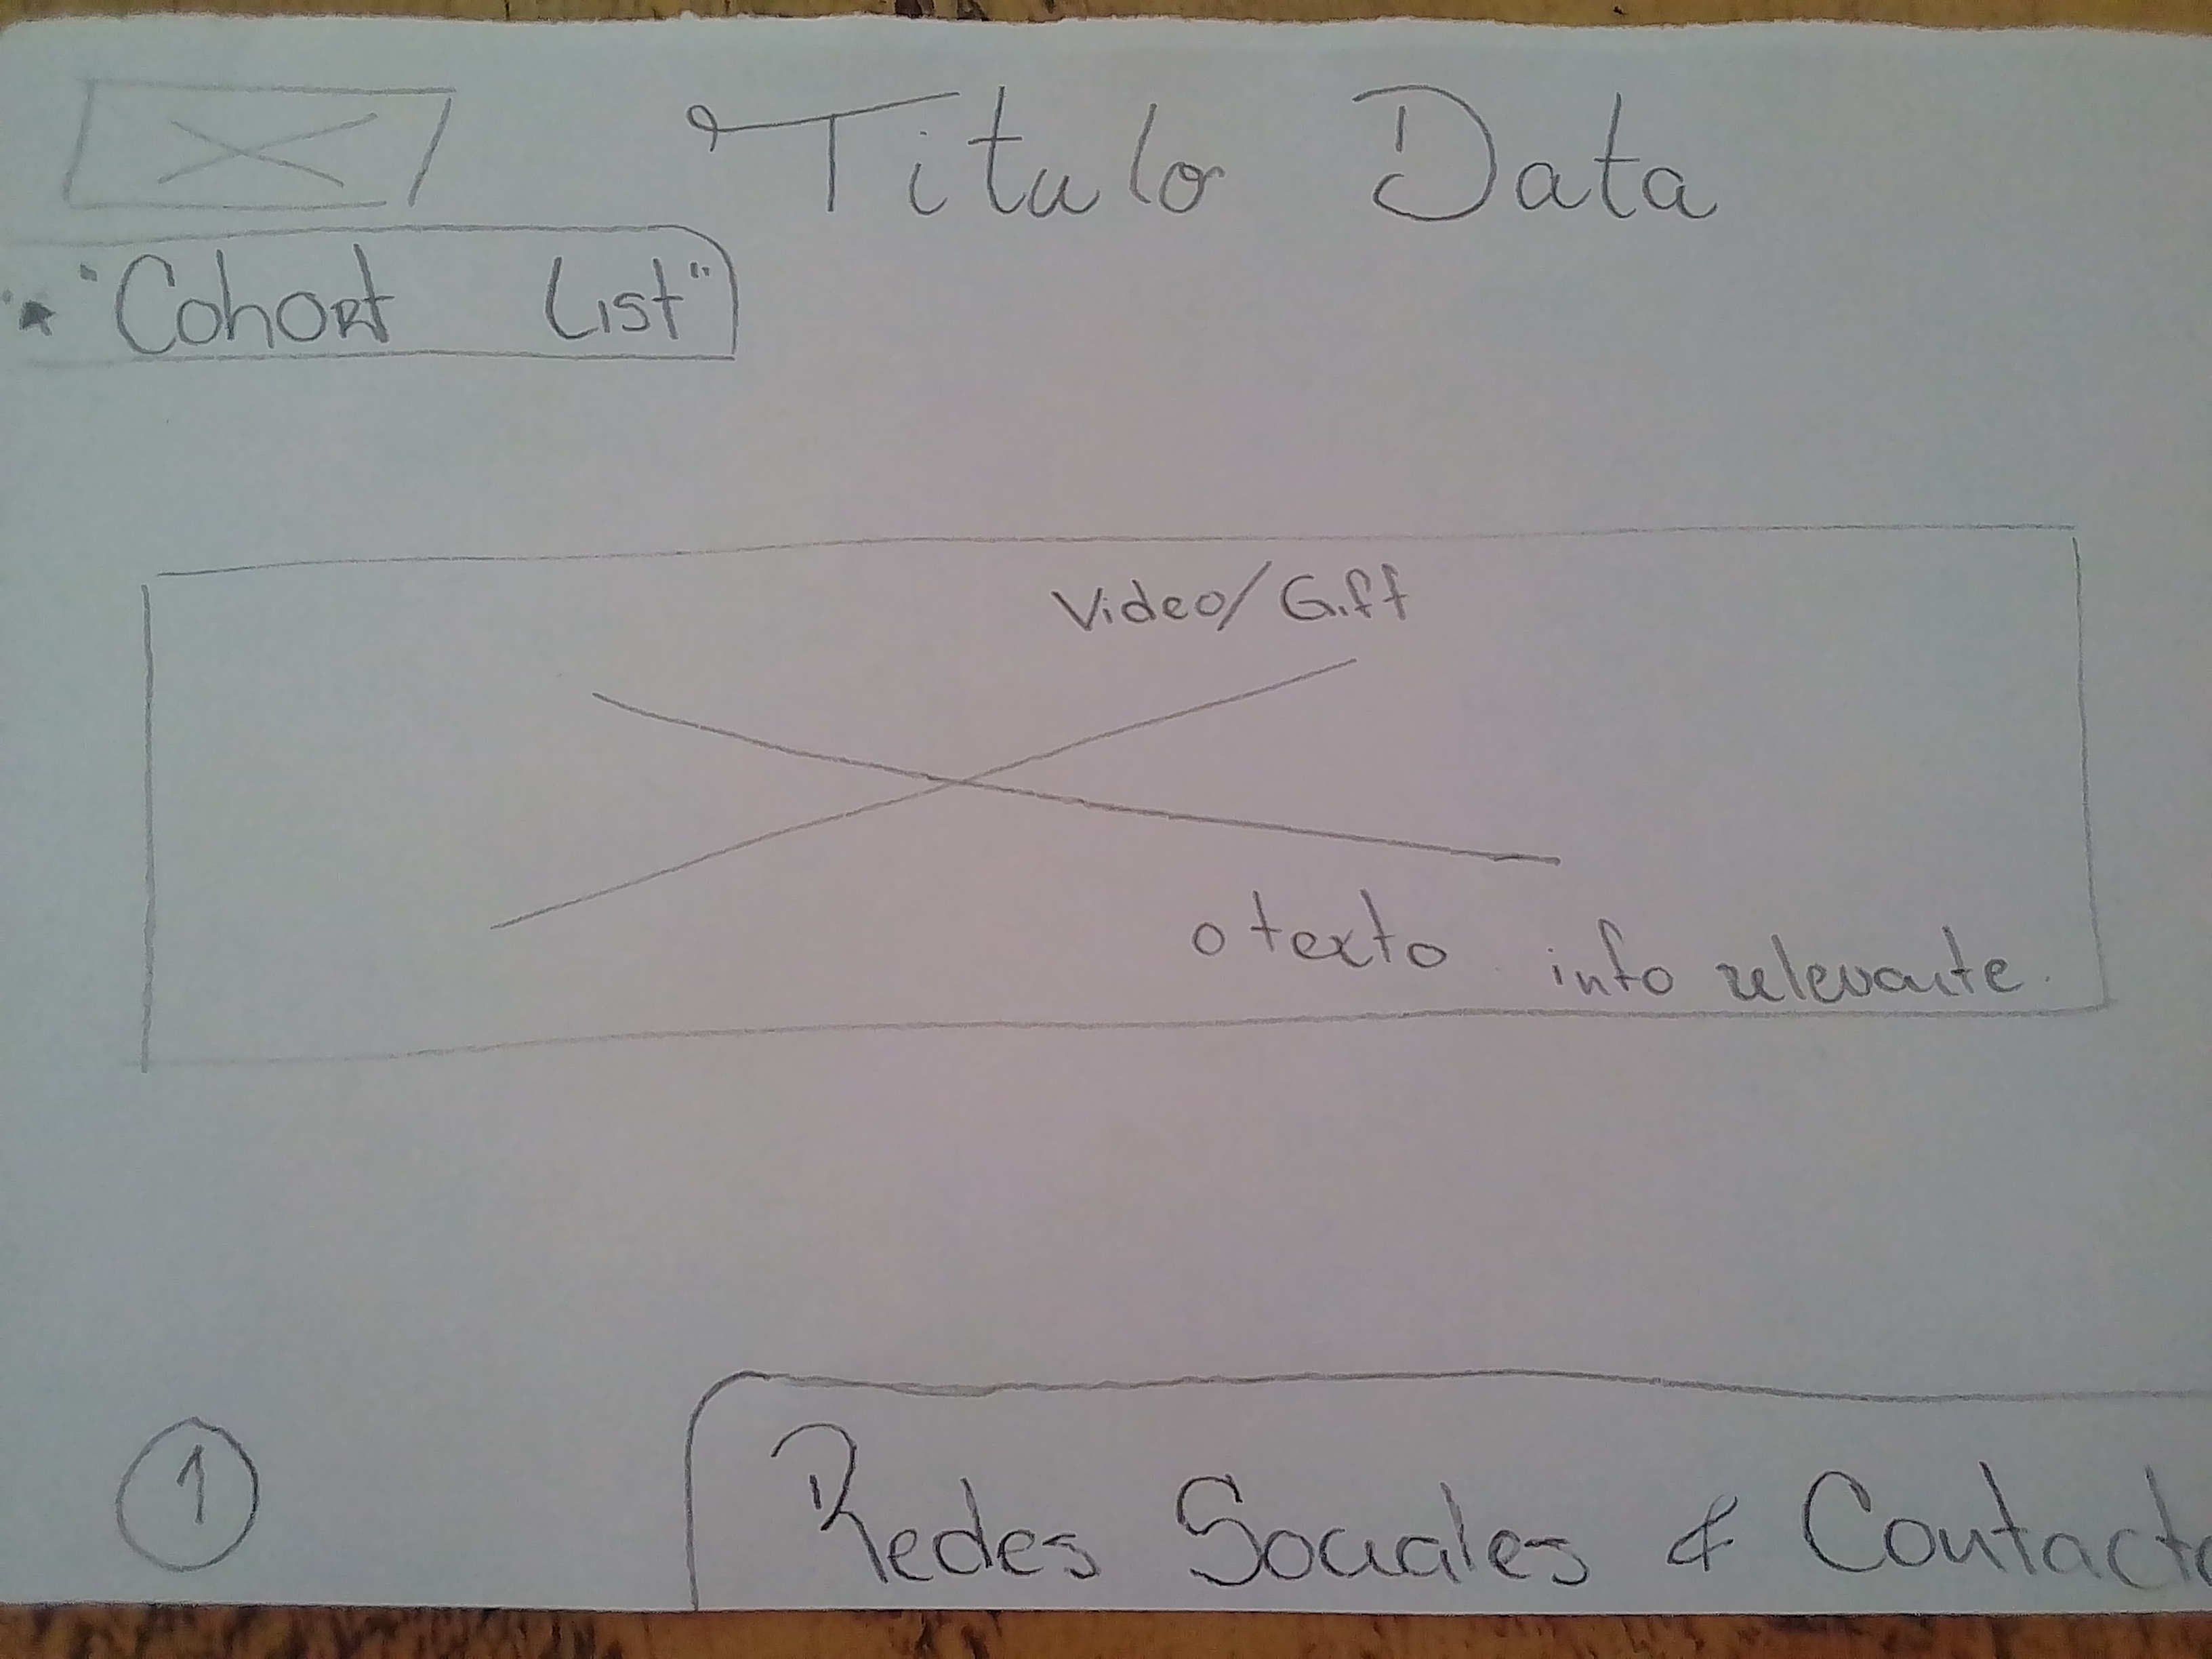 Titulo Data
"Cohort List"
Video/Giff
o texto info relevante.
1
Redes Sociales & Contacto